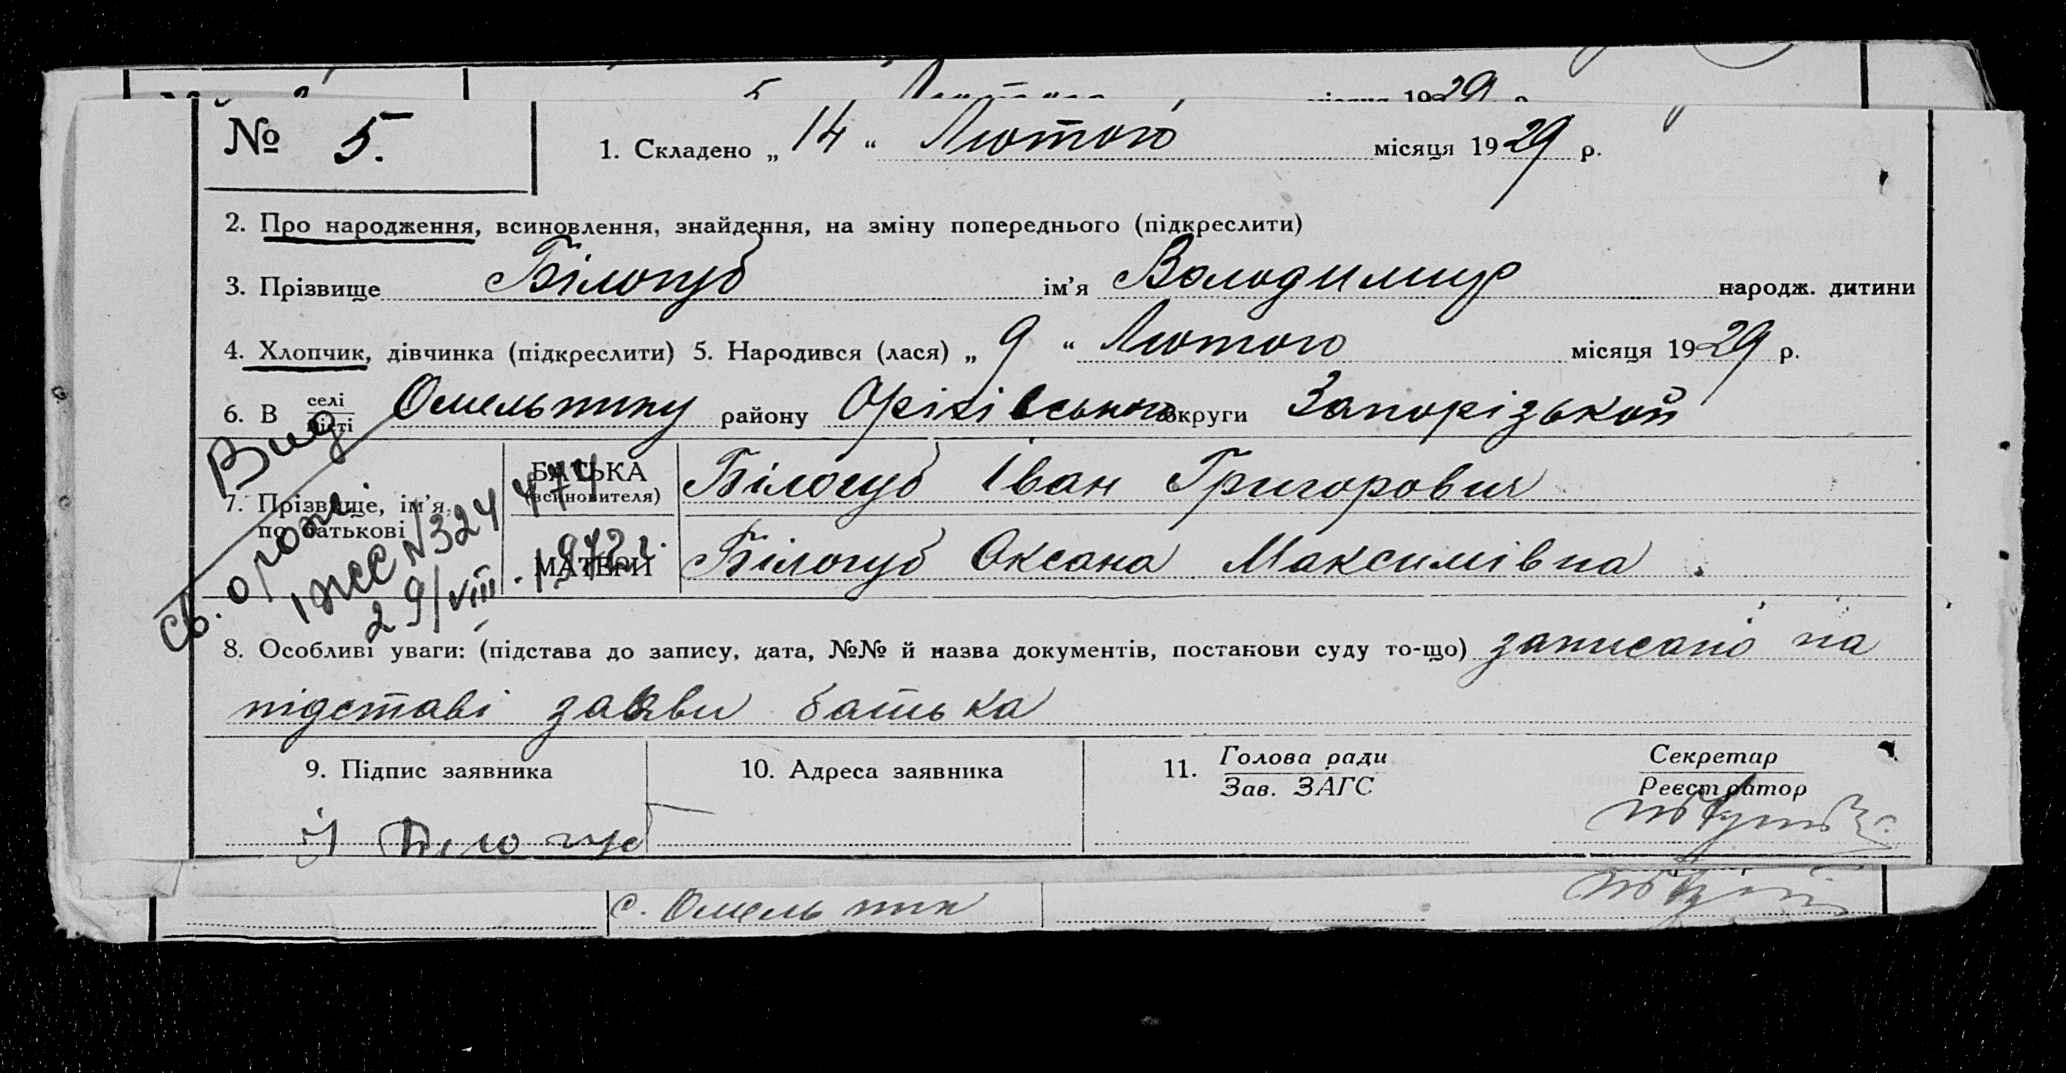 1929 р.
№ 5.
1. Складено „ 14 “ Лютого місяця 1929 р.
2. Про народження, всиновлення, знайдення, на зміну попереднього (підкреслити)
3. Прізвище Білогуб ім'я Володимир народж. дитини
4. Хлопчик, дівчинка (підкреслити) 5. Народився (лася) „ 9 “ Лютого місяця 1929 р.
6. В селі місті Омельнику району Оріхівського округи Запорізькой
Вид
св. о рожд.
ІЖС №324474
29/VIII. 1972 г.
7. Прізвище, ім'я, по батькові
БАТЬКА (всиновителя) Білогуб Іван Григорович
МАТЕРИ Білогуб Оксана Максимівна
8. Особливі уваги: (підстава до запису, дата, №№ й назва документів, постанови суду то-що) записано на
підставі заяви батька
9. Підпис заявника 10. Адреса заявника 11. Голова ради Зав. ЗАГС Секретар Реєстратор
Білогуб
с. Омельник